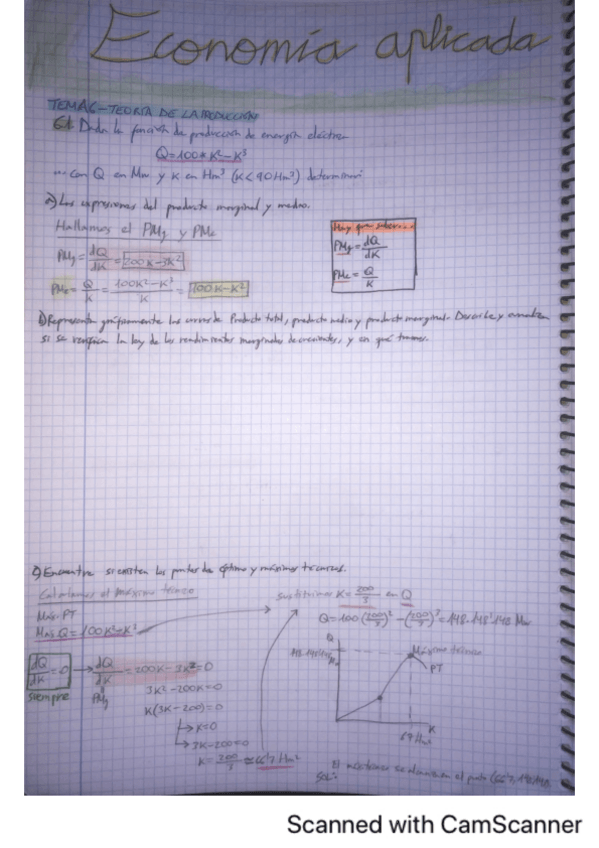 Economía aplicada
TEMA 6 - TEORÍA DE LA PRODUCCIÓN
6.1. Dada la función de producción de energía eléctrica
Q=100*K²-K³
... con Q en Mw y K en Hm³ (K<90Hm³) determinar:
a) Las expresiones del producto marginal y medio.
Hallamos el PMg y PMe
PMg = dQ/dK = 200K-3K²
PMe = Q/K = 100K²-K³/K = 100K-K²
Hay que saber...
PMg = dQ/dK
PMe = Q/K
b) Representa gráficamente las curvas de Producto total, producto medio y producto marginal. Describe y analiza
si se verifica la ley de los rendimientos marginales decrecientes, y en qué tramos.
c) Encuentre si existen los puntos de óptimo y máximos técnicos.
Calculamos el máximo técnico
Max. PT
Max. Q = 100K²-K³
dQ/dK = 0 → dQ/dK = 200K-3K² = 0
siempre
PMg
3K²-200K=0
K(3K-200)=0
K=0
3K-200=0
K = 200/3 ≈ 66'7 Hm³
Sustituimos K = 200/3 en Q
Q = 100(200/3)² - (200/3)³ = 148.148'148 Mw
Q
148.148'148
Mw
Máximo técnico
PT
K
67 Hm³
Sol:
El máximo se alcanza en el punto (66'7, 148.148